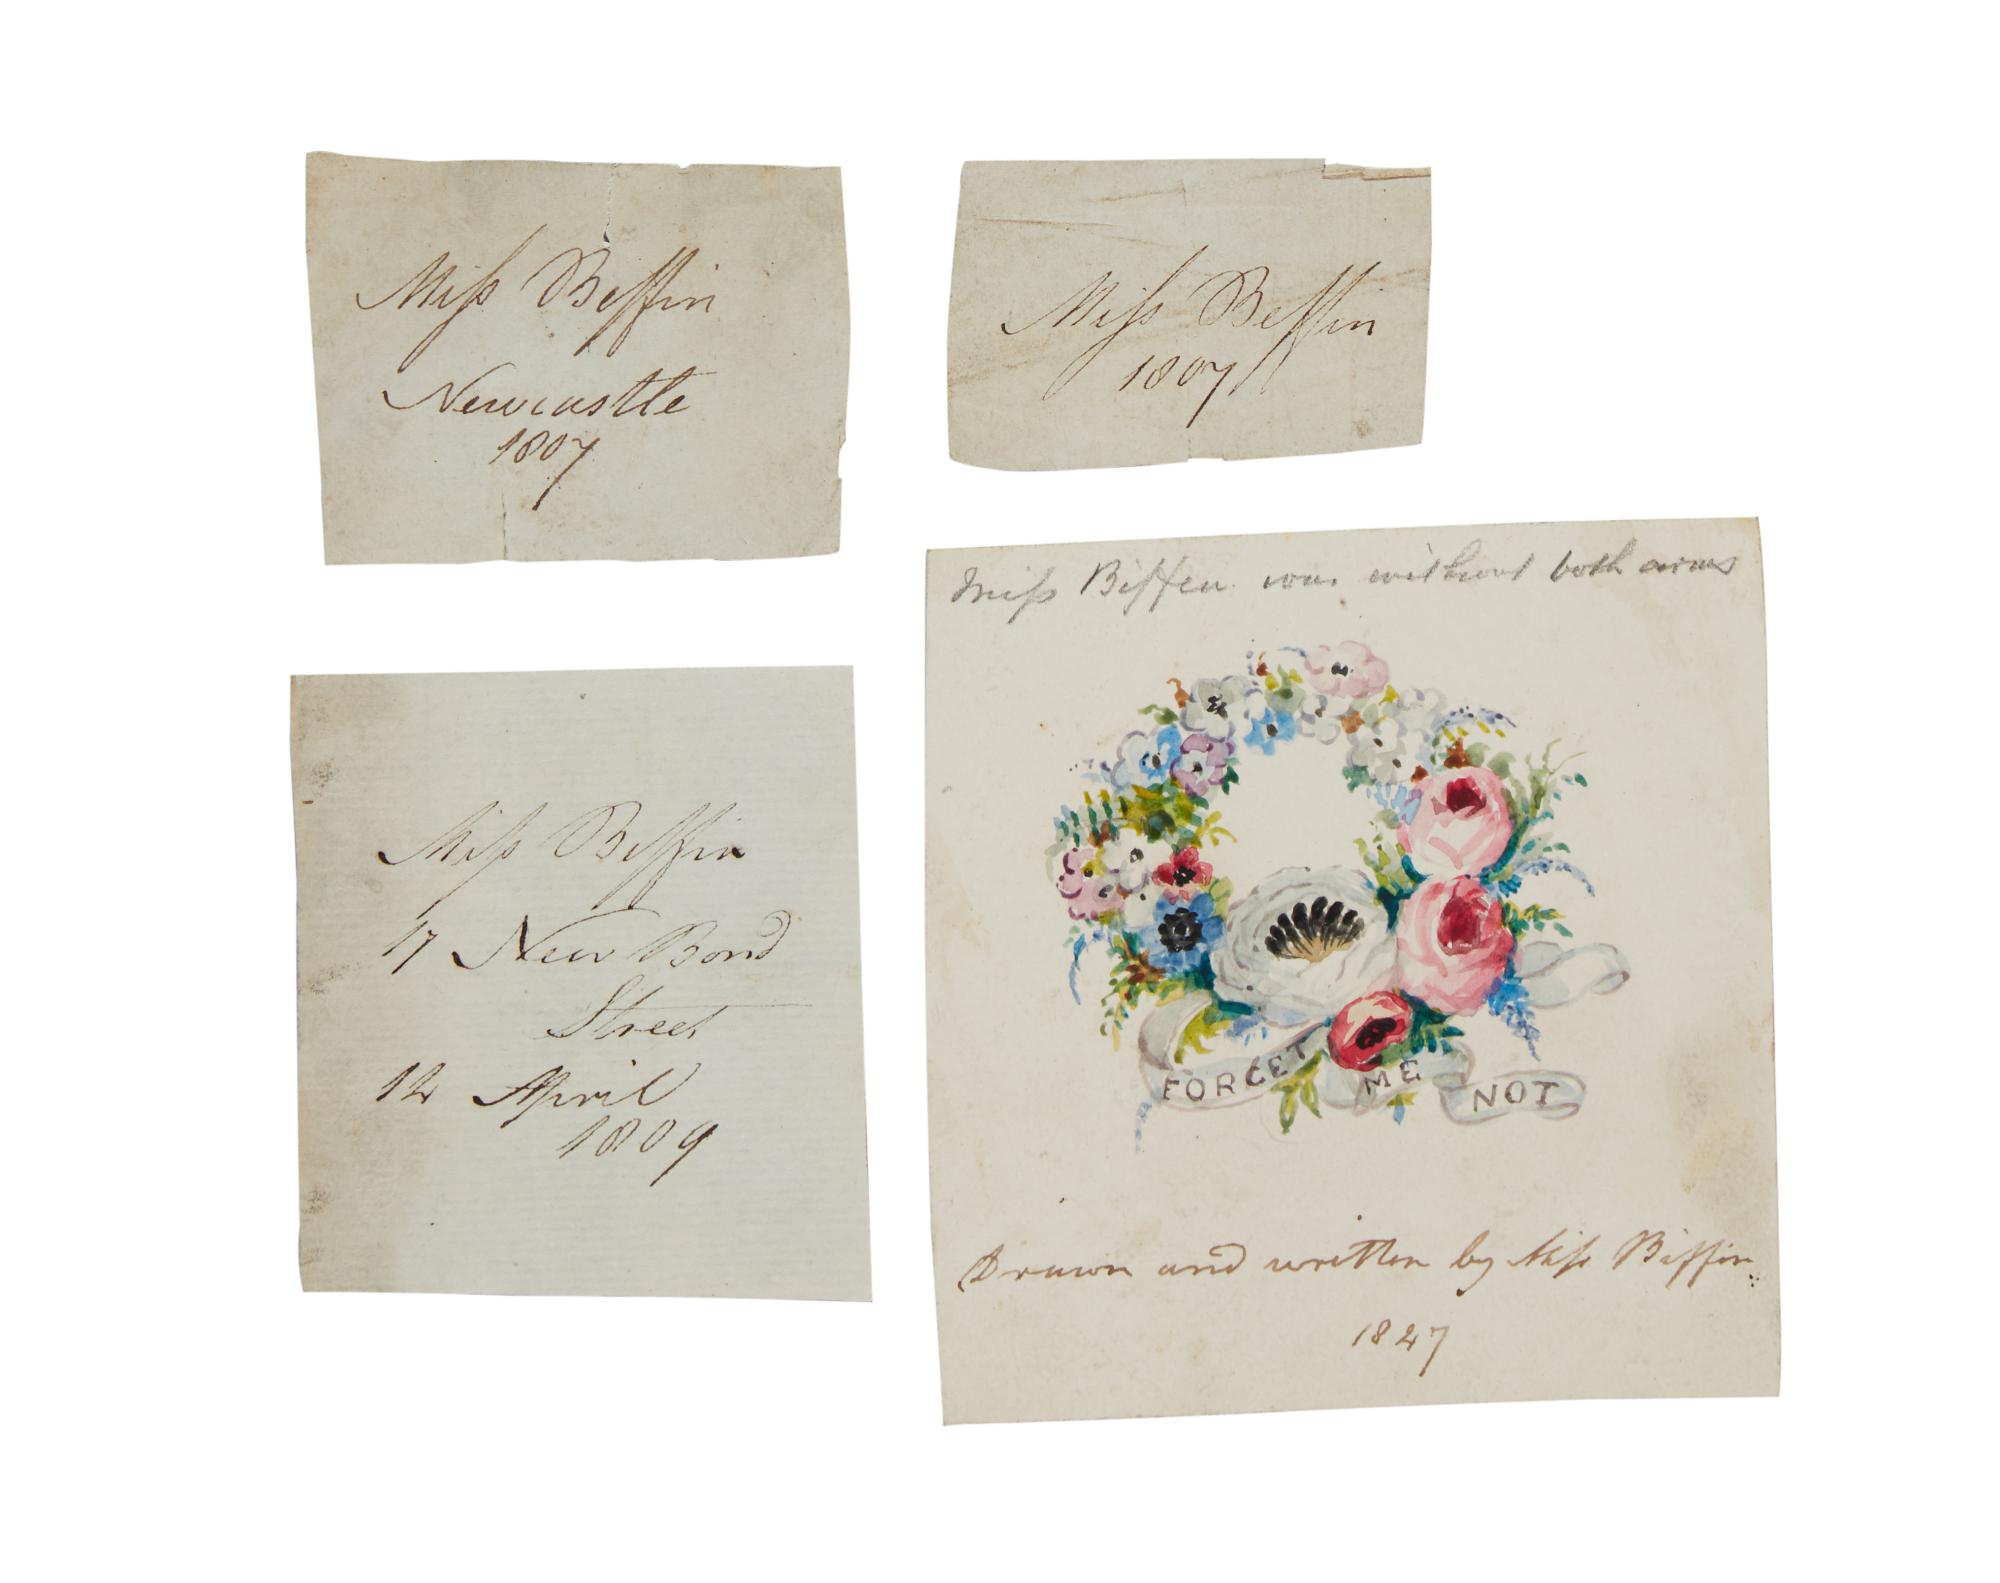 Miss Beffin
Newcastle
1807
Miss Beffin
1807
Miss Beffin
17 New Bond
Street
12 April
1809
Miss Biffen was without both arms
FORGET ME NOT
Drawn and written by Miss Biffin
1847